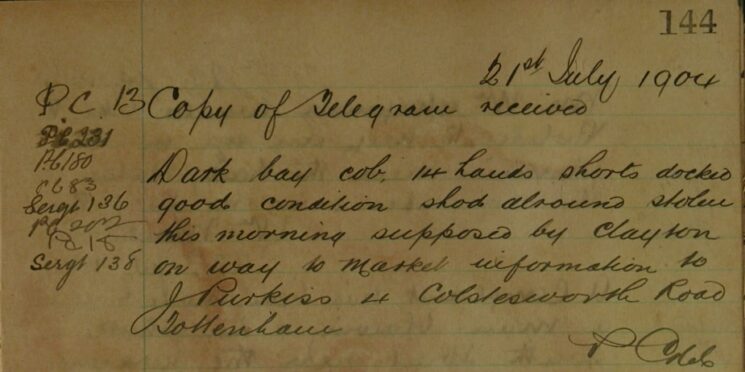 144
21st July 1904
P.C. 13 Copy of Telegram received
P.C. 231
P.C. 180
Dark bay cob. 14 hands shorts docked
C 683
Sergt 136 good condition shod alround stolen
P.C. 202
this morning supposed by Clayton
P.C. 15
Sergt 138 on way to market information to
J Purkiss 4 Coldesworth Road
Tottenham